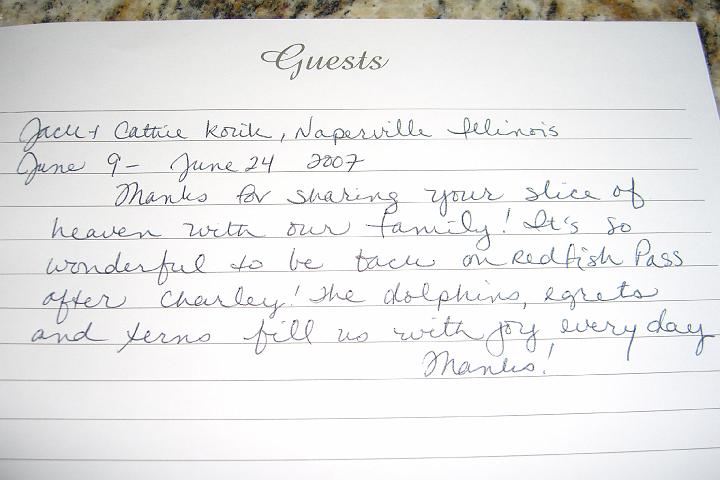 Guests
Jack + Cathie Kozik, Naperville Illinois
June 9 - June 24 2007
Thanks for sharing your slice of
heaven with our family! It's so
wonderful to be back on Redfish Pass
after Charley! The dolphins, egrets
and terns fill us with joy every day
Thanks!